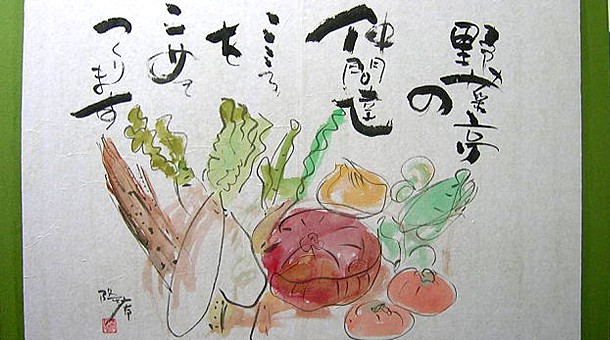 野菜亭の
仲間達
こころを
こめて
つくります